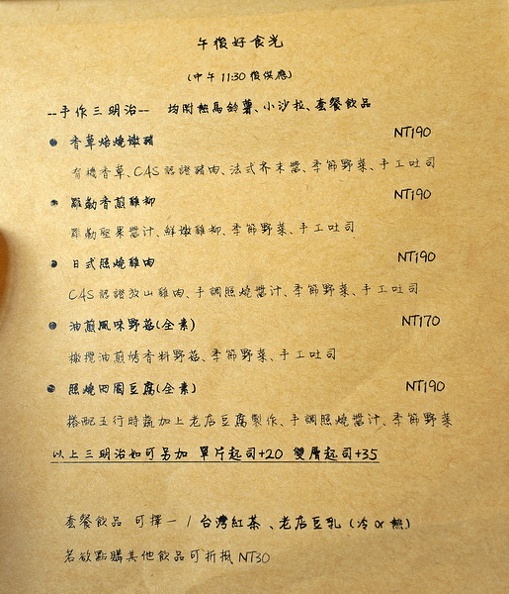 午後好食光
(中午 11:30 後供應)
--手作三明治-- 均附熱馬鈴薯、小沙拉、套餐飲品
香草焙燒嫩豬 NT190
有機香草、CAS認證豬肉、法式芥末醬、季節野菜、手工吐司
羅勒香煎雞柳 NT190
羅勒堅果醬汁、鮮嫩雞柳、季節野菜、手工吐司
日式照燒雞肉 NT190
CAS認證放山雞肉、手調照燒醬汁、季節野菜、手工吐司
油煎風味野菇(全素) NT170
橄欖油煎烤香料野菇、季節野菜、手工吐司
照燒田園豆腐(全素) NT190
搭配五行時蔬加上老店豆腐製作、手調照燒醬汁、季節野菜
以上三明治如可另加 單片起司+20 雙層起司+35
套餐飲品 可擇一 / 台灣紅茶、老店豆乳 (冷 or 熱)
若欲點購其他飲品可折抵 NT30